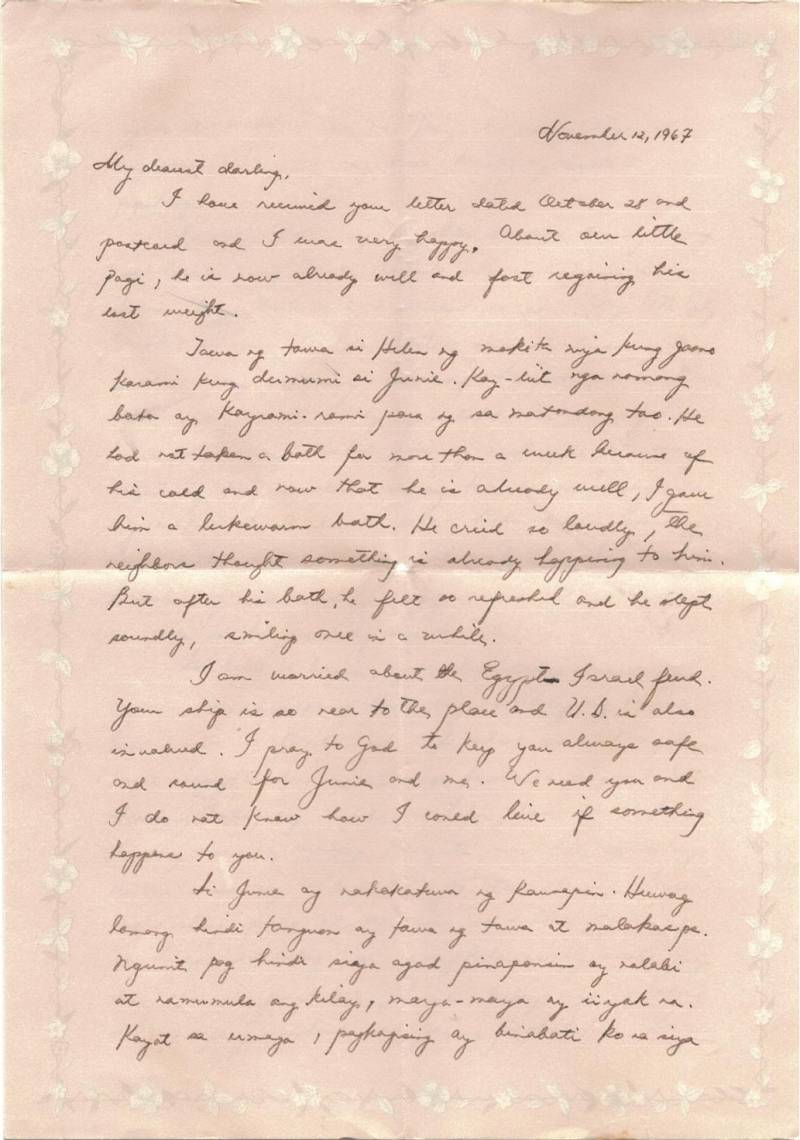 November 12, 1967
My dearest darling,
I have received your letter dated October 28 and
postcard and I was very happy. About our little
Pogi, he is now already well and fast regaining his
lost weight.
Tawa ng tawa si Helen ng makita niya kung gaano
karami kung dumumi si Junie. Kay-liit nga namang
bata ay kayrami-rami para ng sa matandang tao. He
had not taken a bath for more than a week because of
his cold and now that he is already well, I gave
him a lukewarm bath. He cried so loudly, the
neighbors thought something is already happening to him.
But after his bath, he felt so refreshed and he slept
soundly, smiling once in a while.
I am worried about the Egypt-Israel feud.
Your ship is so near to the place and U.S. is also
involved. I pray to God to keep you always safe
and sound for Junie and me. We need you and
I do not know how I could live if something
happens to you.
Si Junie ay nakakatuwa ng kausapin. Huwag
lamang hindi tanguan ay tawa ng tawa at malakas pa.
Ngunit pag hindi siya agad pinapansin ay nalabi
at namumula ang kilay, maya-maya ay iiyak na.
Kayat sa umaga, pagkagising ay binabati ko na siya